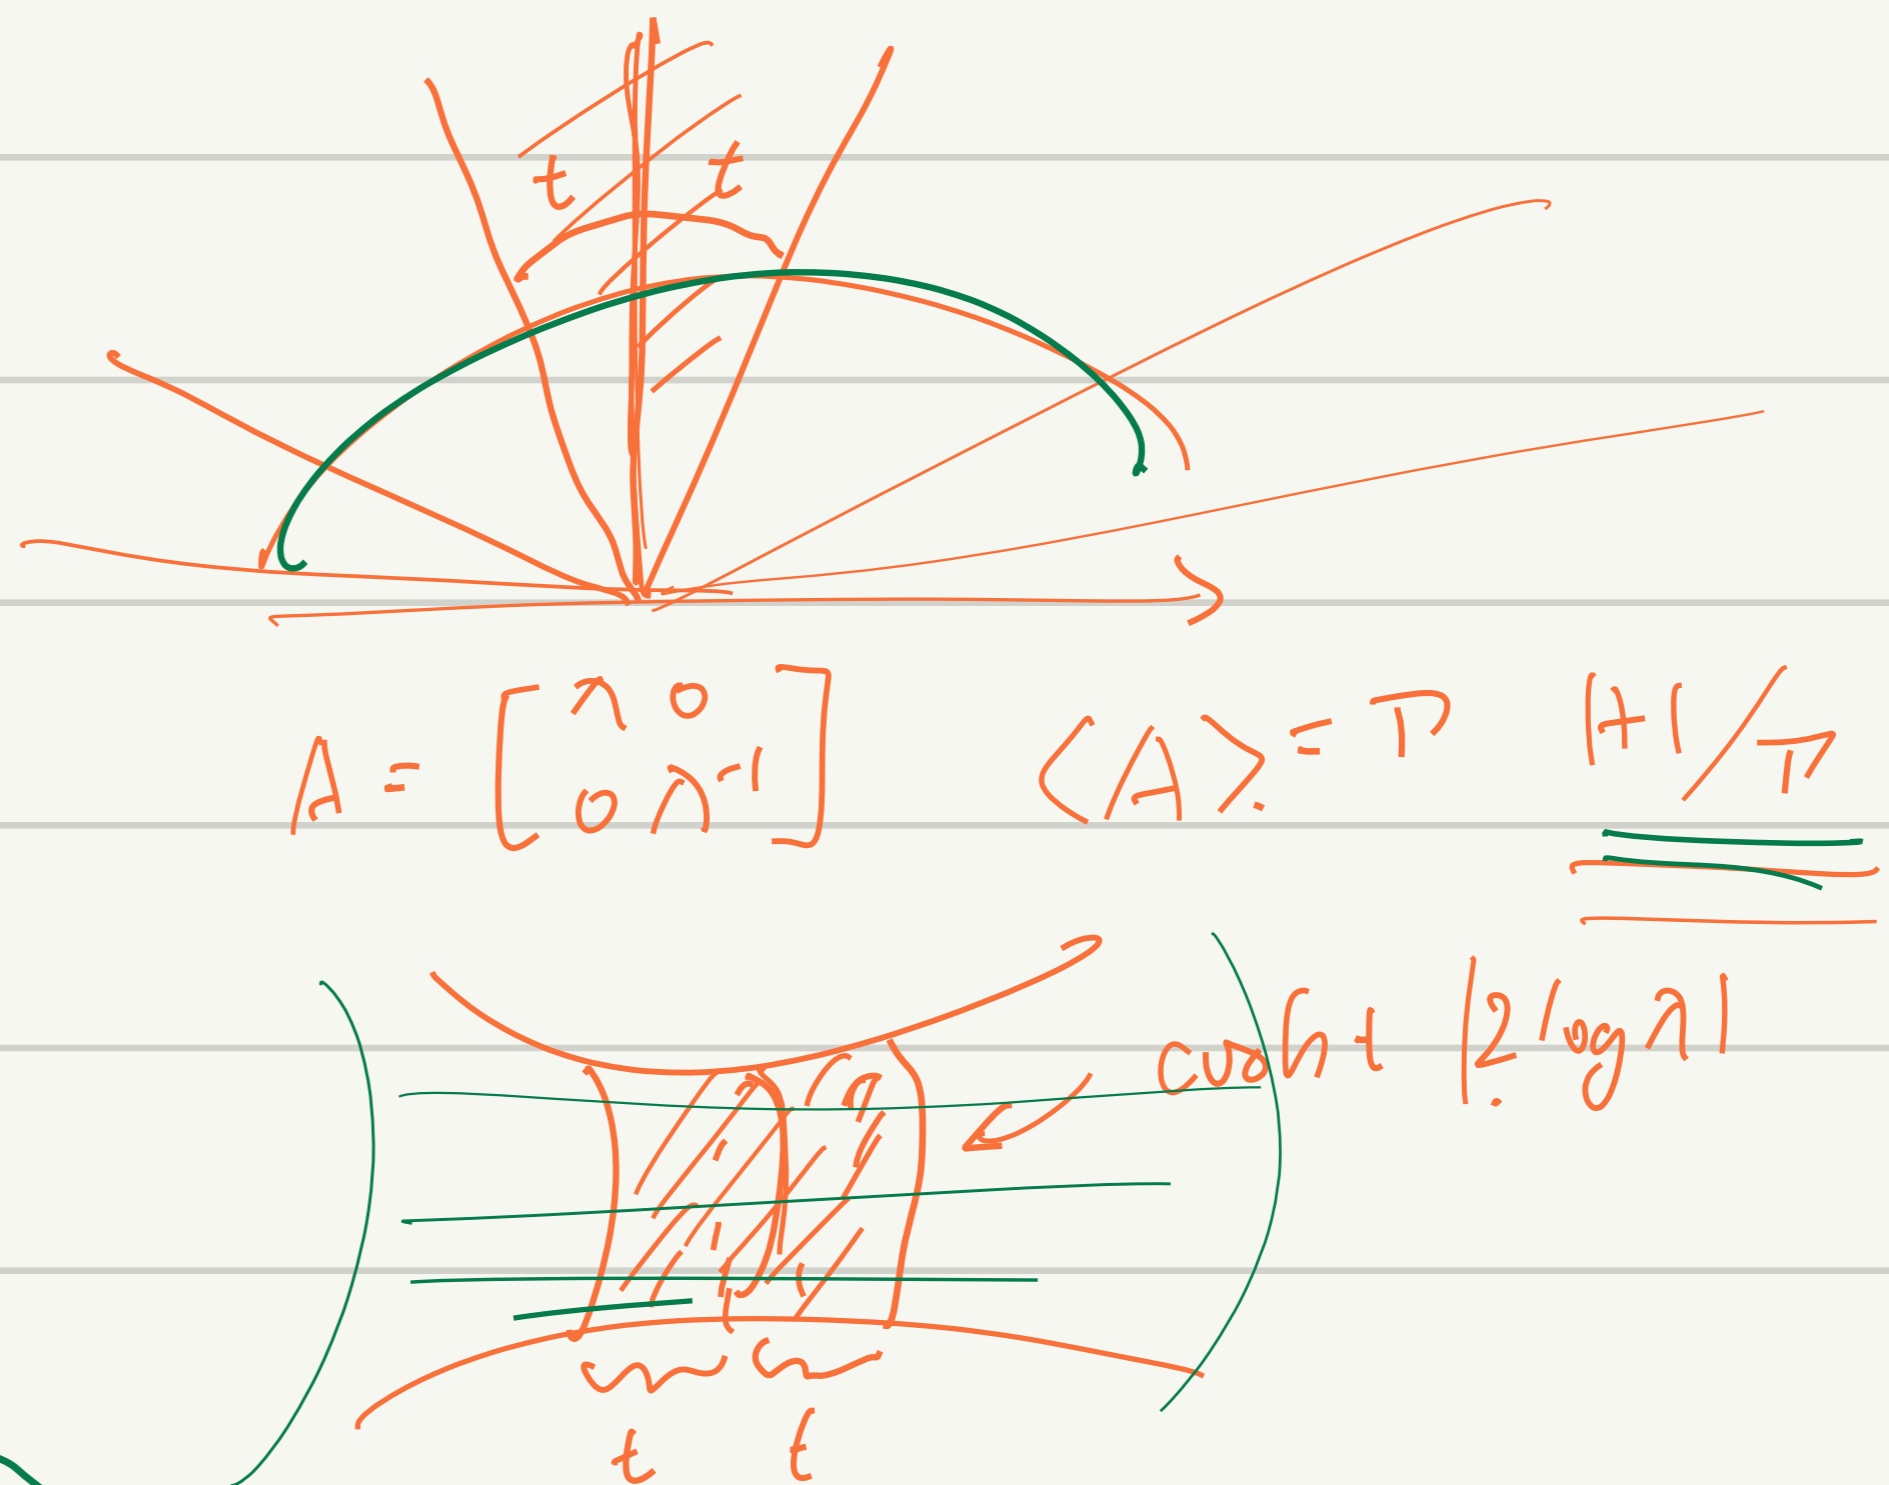 t t
A = [ λ 0
0 λ^-1 ] <A> = Γ. |H|/Γ
cosh t |2 log λ|
t t